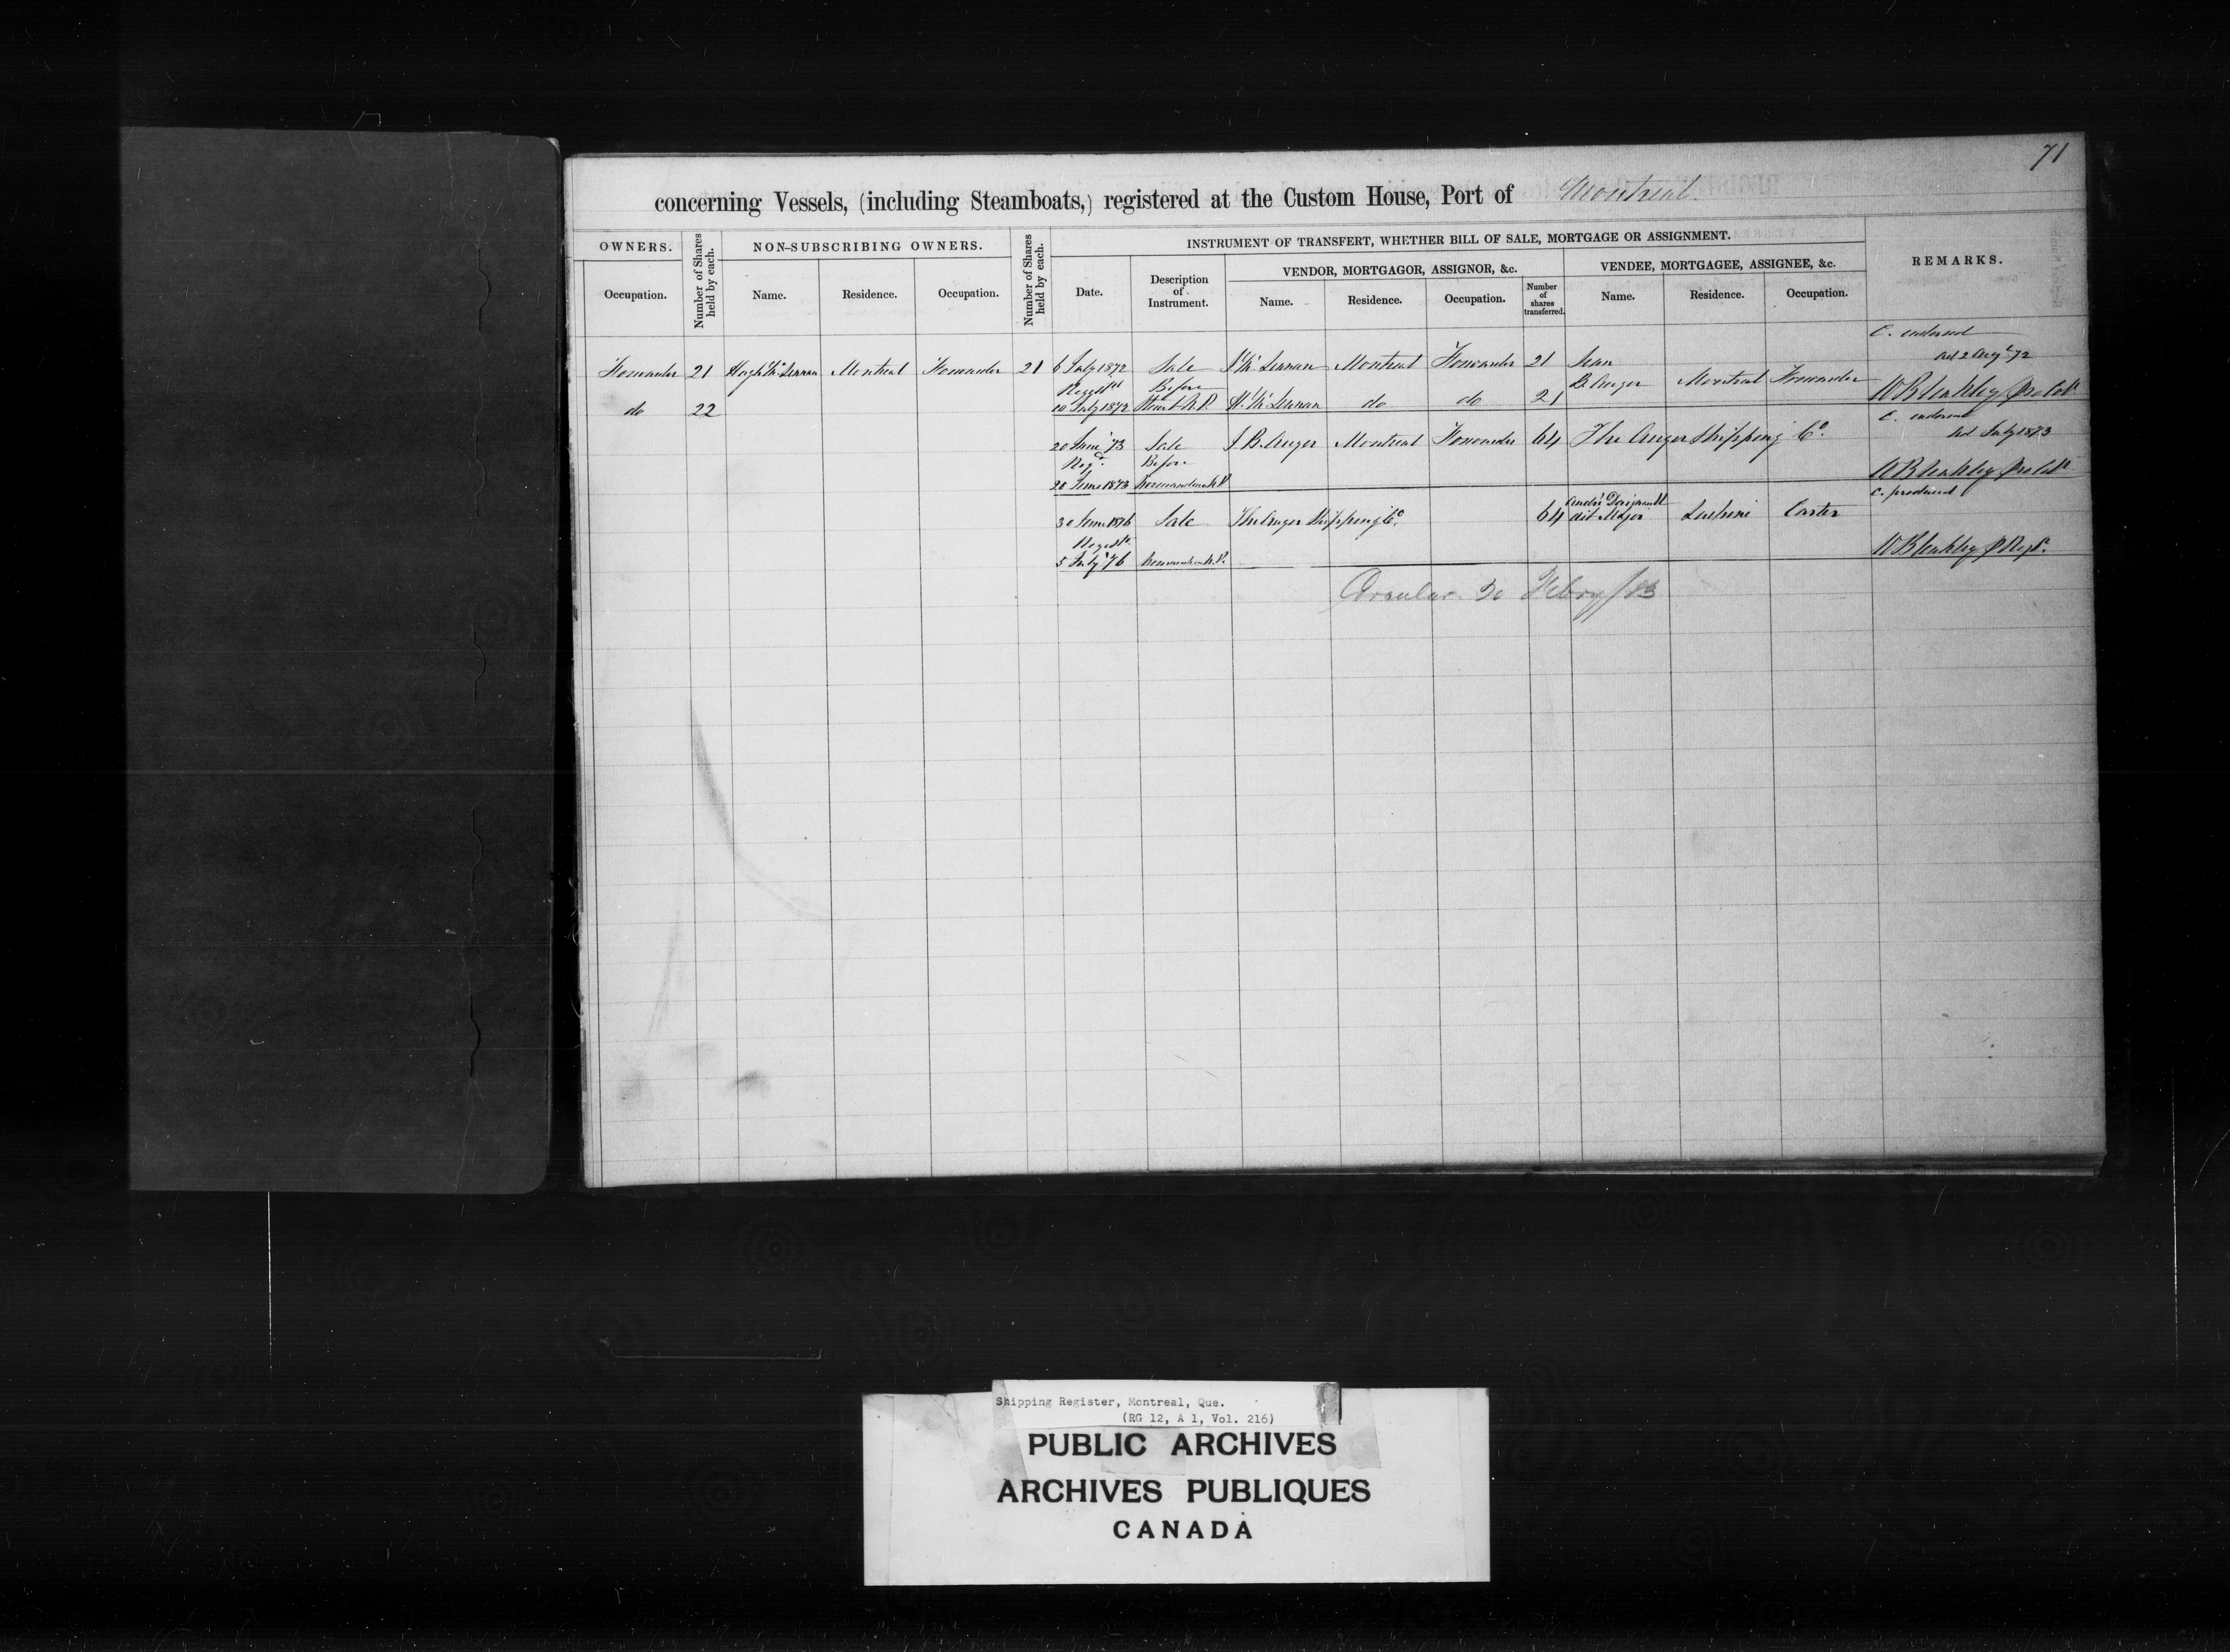 71
concerning Vessels, (including Steamboats,) registered at the Custom House, Port of Montreal.
OWNERS.
Number of Shares held by each.
NON-SUBSCRIBING OWNERS.
Number of Shares held by each.
INSTRUMENT OF TRANSFERT, WHETHER BILL OF SALE, MORTGAGE OR ASSIGNMENT.
REMARKS.
VENDOR, MORTGAGOR, ASSIGNOR, &c.
VENDEE, MORTGAGEE, ASSIGNEE, &c.
Occupation.
Name.
Residence.
Occupation.
Date.
Description of Instrument.
Name.
Residence.
Occupation.
Number of shares transferred.
Name.
Residence.
Occupation.
C. endorsed
del 2 Augt 72
Forwarder 21 Hugh McLennan Montreal Forwarder 21 6 July 1872 Sale J McLennan Montreal Forwarder 21 Jean
Regd Before B Auger Montreal Forwarder W Bleakley
do 22 10 July 1872 Stuart N.P. H. McLennan do do 21
C. endorsed
del July 1873
20 June '73 Sale J B Auger Montreal Forwarder 64 The Auger Shipping Co.
Regd. Before
28 June 1873 W Bleakley
C. produced
30 June 1876 Sale The Auger Shipping Co. 64 André Daignault dit Major Lachine Carter
Regd.
5 July '76 W Bleakley
Circular 20 Febry/83
Shipping Register, Montreal, Que.
(RG 12, A 1, Vol. 216)
PUBLIC ARCHIVES
ARCHIVES PUBLIQUES
CANADA